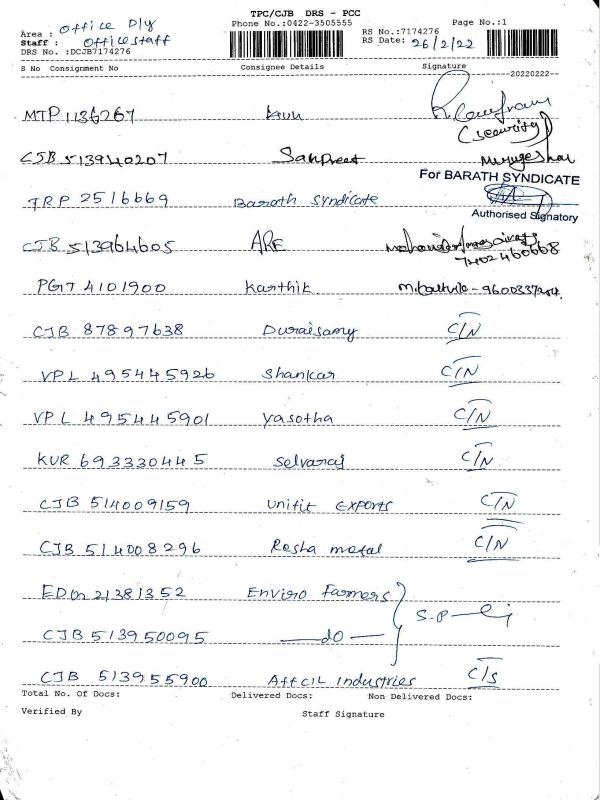 TPC/CJB DRS - PCC
Phone No.:0422-3505555
Page No.:1
Area : Office Dly
Staff : Office staff
DRS No. :DCJB7174276
RS No.:7174276
RS Date: 26/2/22
S No Consignment No Consignee Details Signature
--20220222--
MTP 1136267
(Security)
CJB 513940207 Sanpreet Murugeshan
For BARATH SYNDICATE
TRP 2516669 Barath Syndicate
Authorised Signatory
CJB 513964605 ARE
7402460668
PGT 4101900 Karthik
CJB 87897638 Duraisamy C/N
VPL 495445926 Shankar C/N
VPL 495445901 Yasotha C/N
KUR 693330445 Selvaraj C/N
CJB 514009159 Unifit Exports C/N
CJB 514008296 Resha metal C/N
EDM 21381352 Enviro Farmers
S.P
CJB 513950095 —do—
CJB 513955900 Affcil Industries C/s
Total No. Of Docs: Delivered Docs: Non Delivered Docs:
Verified By Staff Signature